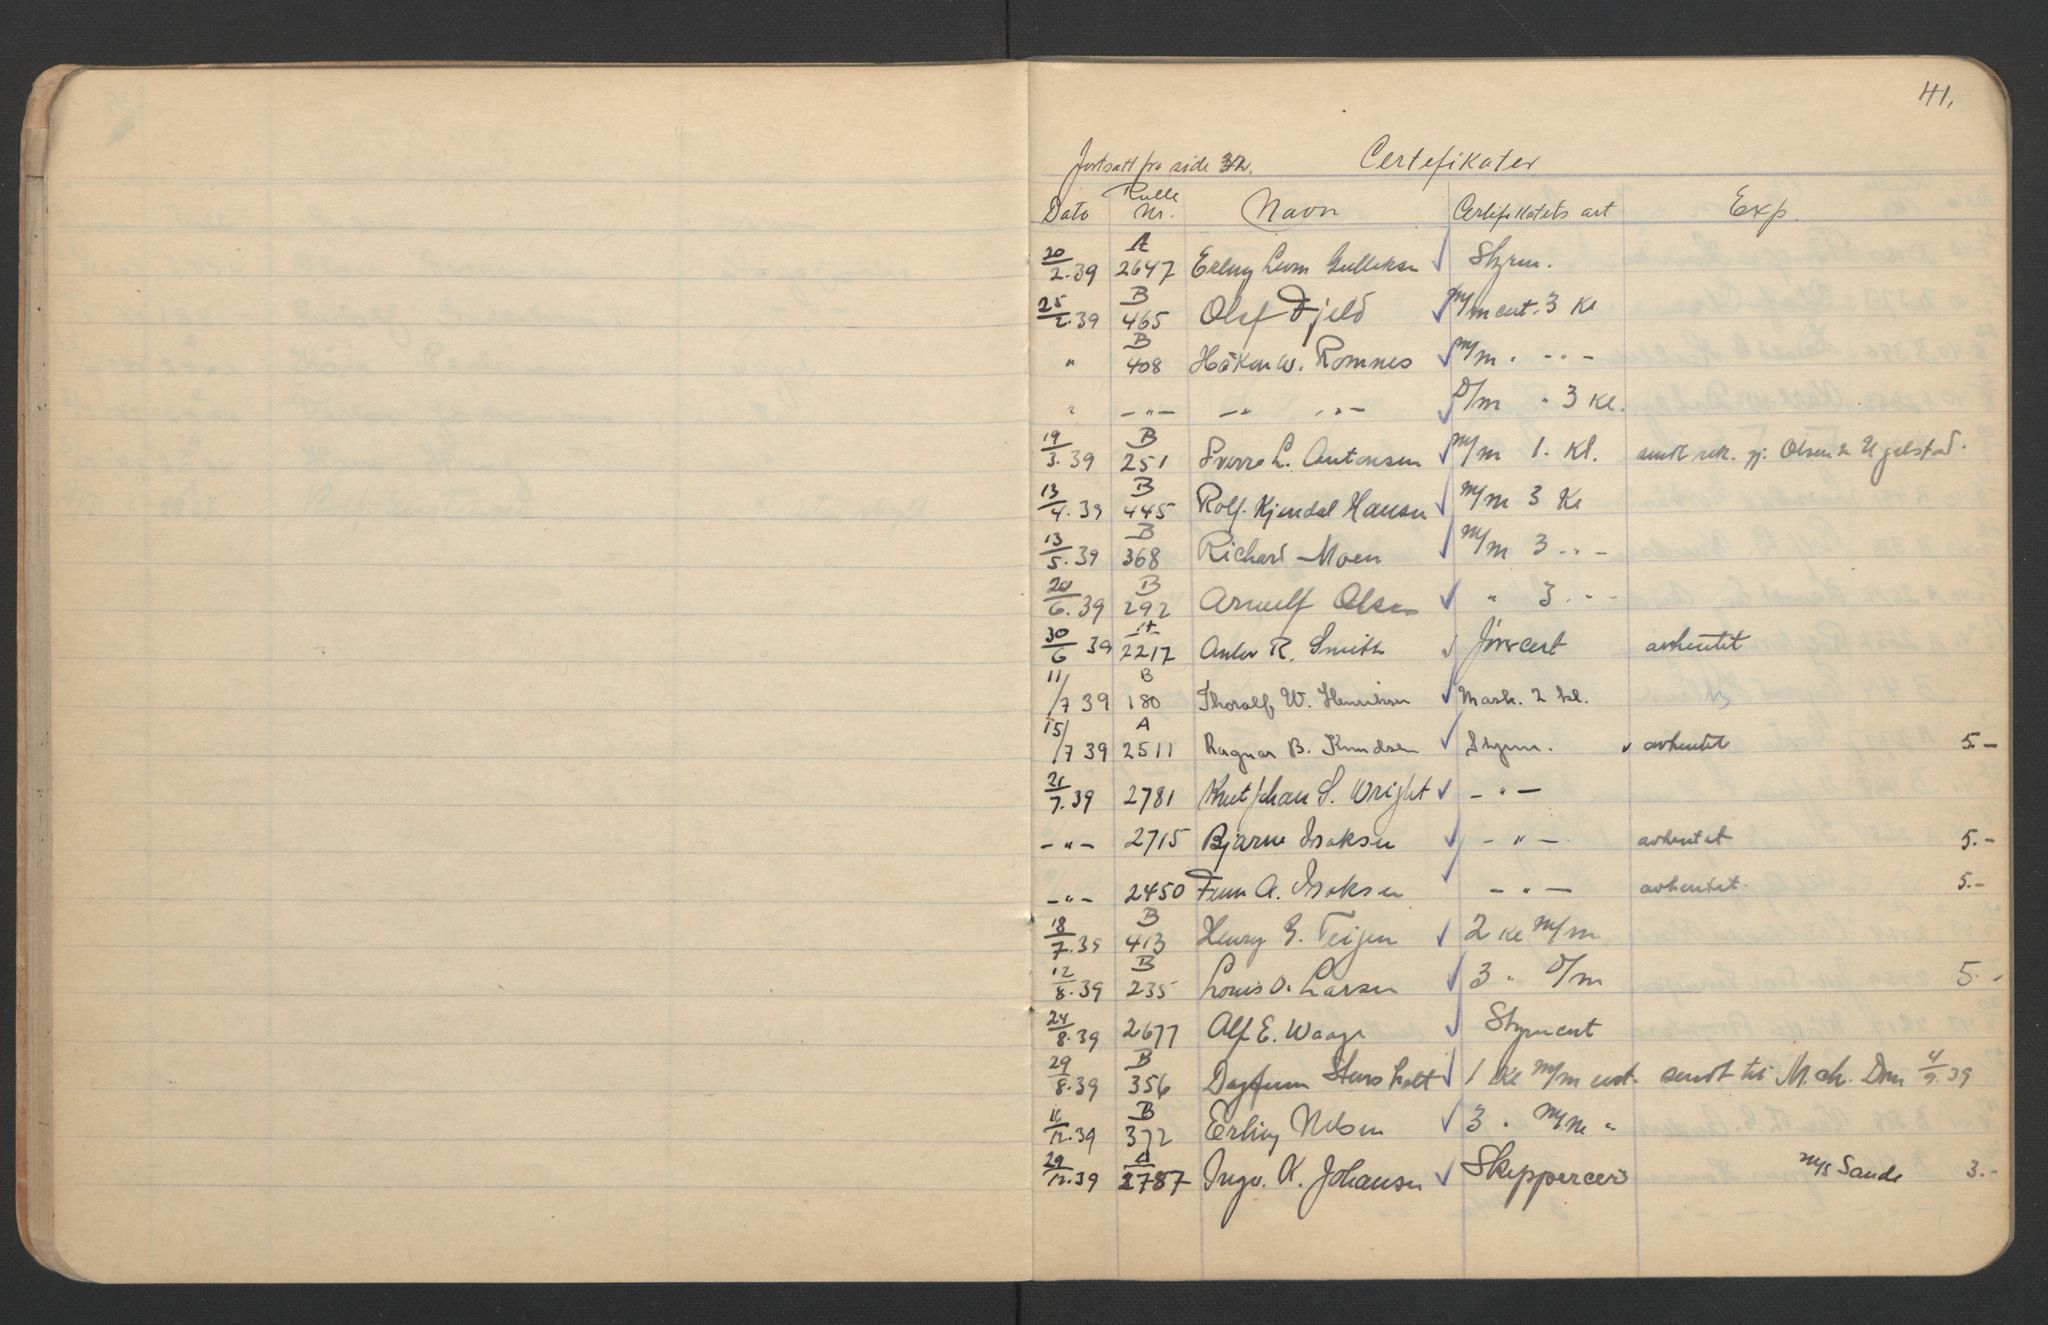 41.
Fortsatt fra side Certefikater
Dato Rulle Nr. Navn Certifikatets art Exp.
20/2.39 A 2647 Erling Leon Gulleksen ✓ Styrm.
25/2.39 B 465 Olaf Fjeld ✓ m/m cert. 3 Kl
" B 408 Håkon W. Romnes ✓ m/m " - " -
" - " - - " " - ✓ D/m " 3 Kl.
19/3.39 B 251 Sverre L. Antonsen ✓ m/m 1. Kl. sendt rek. gj. Olsen & Ugelstad.
13/4.39 B 445 Rolf Kjendal Hansen ✓ m/m 3 Kl
13/5.39 B 368 Richard Moen ✓ m/m 3 - " -
20/6.39 B 292 Arnulf Olsen ✓ " 3 - " -
30/6 39 A 2217 Antor R. Smith ✓ avhentet
11/7 39 B 180 Thoralf W. Henriksen ✓ Mask. 2 kl.
15/7 39 A 2511 Ragnar B. Knudsen ✓ Styrm. ✓ avhentet 5.-
21/7.39 2781 Knut Johan S. Wright ✓ - " -
- " - 2715 Bjarne Isaksen ✓ - " - avhentet 5.-
- " - 2450 Finn A. Isaksen ✓ - " - avhentet. 5.-
18/7.39 B 413 Henry G. Teigen ✓ 2 Kl m/m
12/8.39 B 235 Louis O. Larsen ✓ 3 " D/m 5.-
24/8.39 2677 Alf E. Waage ✓ Styrmcert
29/8.39 B 356 Dagfinn ✓ 1 Kl m/m cert. sendt til M. ch. Dron 4/9.39
16/12.39 B 372 Erling Nilsen ✓ 3 " m/m "
29/12.39 A 2787 Ingv. K. Johansen ✓ Skippercert m/s Sande 3.-